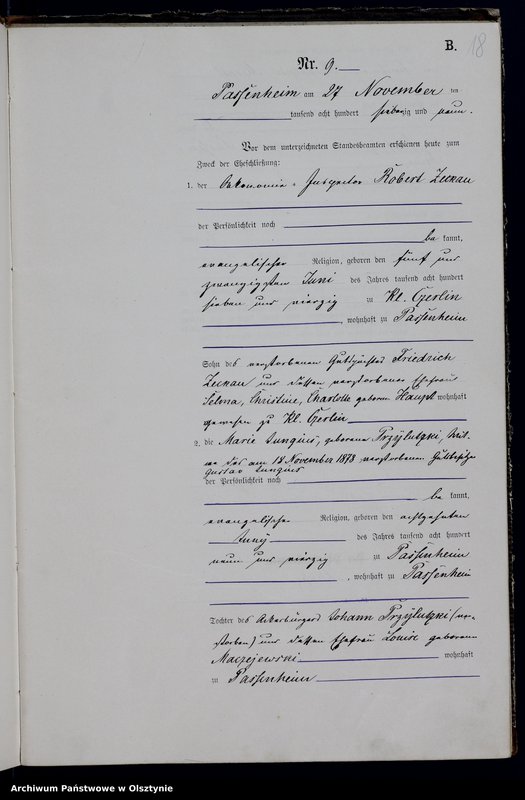 B.
18
Nr. 9.
Passenheim am 27 November ten
tausend acht hundert siebenzig und neun.
Vor dem unterzeichneten Standesbeamten erschienen heute zum
Zweck der Eheschließung:
1. der Oekonomie-Inspektor Robert Zeenau
der Persönlichkeit nach
be kannt,
evangelischer Religion, geboren den fünf und
zwanzigsten Juni des Jahres tausend acht hundert
sieben und vierzig zu Kl. Gerlin
, wohnhaft zu Passenheim
Sohn des verstorbenen Gutspächters Friedrich
Zeenau und dessen verstorbener Ehefrau
Christine, Charlotte geboren Haupt wohnhaft
gewesen zu Kl. Gerlin
2. die Marie Jungius, geborene Przylutzki, Wit-
we des am 18 November 1878 verstorbenen Gutsbesitzer
Gustav Jungius
der Persönlichkeit nach
be kannt,
evangelischer Religion, geboren den achtzehnten
Juny des Jahres tausend acht hundert
neun und vierzig zu Passenheim
, wohnhaft zu Passenheim
Tochter des Ackerbürgers Johann Przylutzki (ver-
storben) und dessen Ehefrau Louise geborenen
Maczejewski wohnhaft
zu Passenheim
Archiwum Państwowe w Olsztynie